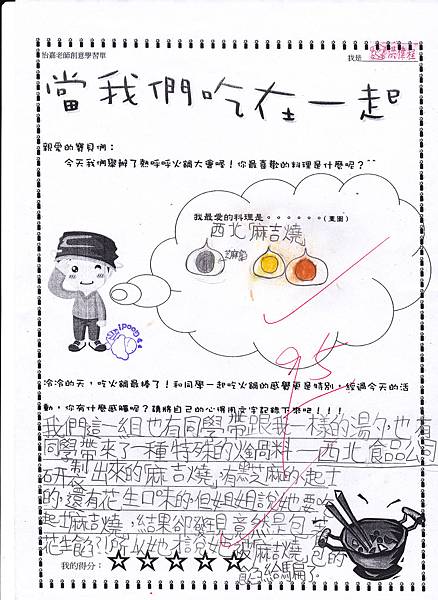 怡嘉老師創意學習單
我是
當我們吃在一起
親愛的寶貝們：
今天我們舉辦了熱呼呼火鍋大會喔！你最喜歡的料理是什麼呢？^^
我最愛的料理是。。。。。。(畫圖)
西北麻吉燒
芝麻餡
Good!
95
冷冷的天，吃火鍋最棒了！和同學一起吃火鍋的感覺更是特別，經過今天的活
動，你有什麼感觸呢？請將自己的心得用文字記錄下來吧！！！
我們這一組也有同學帶跟我一樣的湯勺，也有
同學帶來了一種特殊的火鍋料—西北食品公司
研製出來的「麻吉燒」，有芝麻的、起士
的，還有花生口味的，但姐姐說她要吃
起士麻吉燒，結果卻發現竟然是包
花生餡，所以她被麻吉燒包的
餡給騙了。
我的得分：☆☆☆☆☆